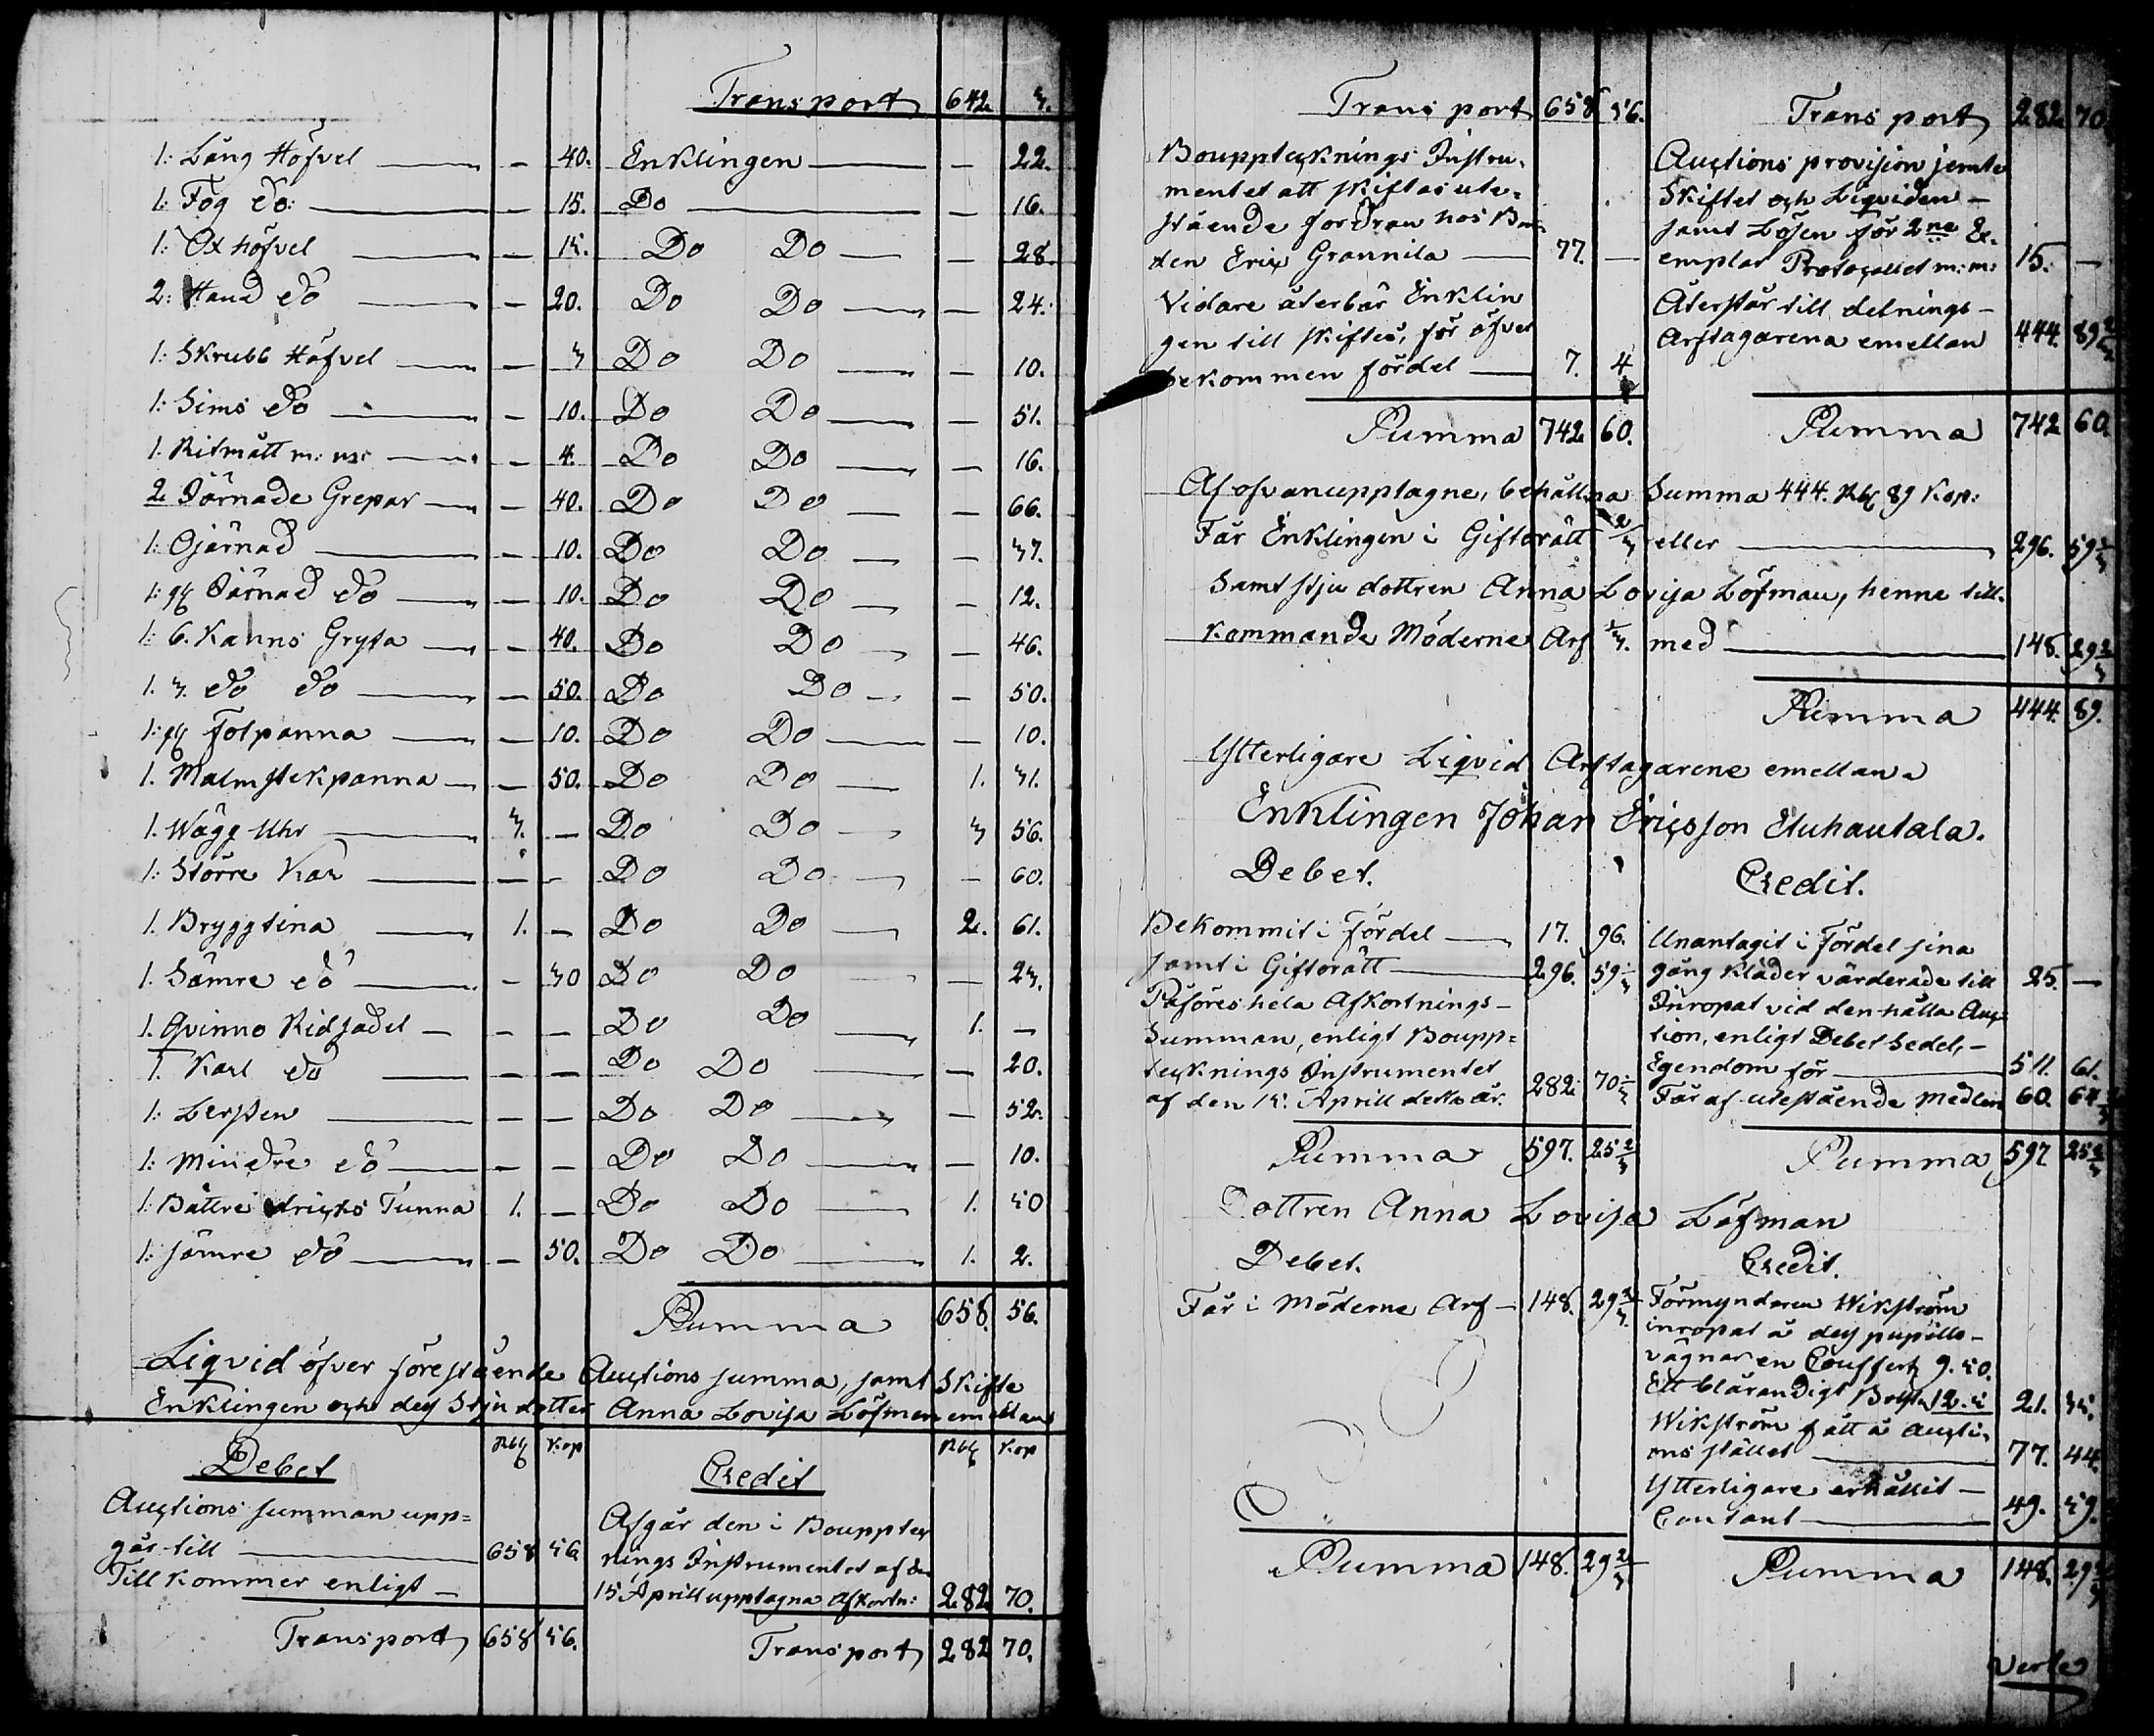 Transport 642. 3.
1: Lång Höfvel — 40. Enklingen — 22.
1: Fog do: — 15. Do — 16.
1: Oxhöfvel — 15. Do Do — 28.
2: Hand do — 20. Do Do — 24.
1: Skrubb Höfvel — 3 Do Do — 10.
1: Sims do — 10. Do Do — 51.
1. Ritmått m: m: — 4. Do Do — 16.
2. Järnade Grepar — 40. Do Do — 66.
1: Ojärnad — 10. Do Do — 37.
1: Järnad do — 10. Do Do — 12.
1: 6. Kanns Gryta — 40. Do Do — 46.
1. 3. do do — 50. Do Do — 50.
1: Fotpanna — 10. Do Do — 10.
1. Malmstekpanna — 50. Do Do 1. 31.
1. Wägg Uhr 3. — Do Do 3 56.
1: Större Kar — — Do Do — 60.
1. Bryggtina 1. — Do Do 2. 61.
1. Sämre do — 30 Do Do — 23.
1. Qvinno Ridsadel — — Do Do 1. —
1. Karl do — — Do Do — 20.
1: Lerften — — Do Do — 52.
1: Mindre do — — Do Do — 10.
1: Bättre dricks Tunna 1. — Do Do 1. 50
1: sämre do — 50. Do Do 1. 2.
Summa 658. 56.
Liqvid öfver förestående Auctions summa, samt Skifte
Enklingen och dess Stjudotter Anna Lovisa Löfman emellan
Debet Rbl Kop Credit Rbl Kop
Auctions summan upp=
går till — 658 56
Till kommer enligt —
Transport 658 56.
Afgår den i Bouppteck
nings Instrumentet af den
15 Aprill upptagna Afkortn: 282 70.
Transport 282 70.
Transport 658 56.
Bouppteknings Instru-
mentet att skiftas ute=
stående fordran hos Bon=
den Eric Grannila — 77. —
Vidare återbär Enklin
gen till skiftes, för öfver
bekommen fördel — 7. 4
Summa 742 60.
Transport 282 70.
Auctions provision jemte
Skiftet och Liqviden —
samt Lösen för 2ne Ex-
emplar Protocollet m: m: 15. —
Återstår till delnings —
Arftagarena emellan 444. 89 2/3
Summa 742 60.
Af ofvanupptagne, behållna Summa 444. Rbl 89 Kop:
Får Enklingen i Giftorätt 2/3 eller — 296. 59 1/3
Samt stju dottren Anna Lovisa Löfman, henne till-
kommande Möderne Arf 1/3. med — 148. 29 2/3
Summa 444. 89.
Ytterligare Liqvid Arftagarene emellan
Enklingen Johan Ericsson Eluhautala.
Debet. Credit.
Bekommit i fördel — 17. 96.
samt i Giftorätt — 296. 59 1/3
Påföres hela Afkortnings—
Summan, enligt Boupp=
tecknings Instrumentet
af den 15: Aprill detta år. 282. 70 1/3
Summa 597. 25 2/3
Unantagit i fördel sina
gång kläder värderade till 25. —
Inropat vid den hålla Auc-
tion, enligt Debet Sedel, —
Egendom för — 511. 61.
Får af utestående medlen 60. 64 2/3
Summa 597 25 2/3
Dottren Anna Lovisa Löfman
Debet. Credit.
Får i Möderne Arf — 148. 29 2/3
Summa 148. 29 2/3
Förmyndaren Wikström
inropat å dess pupills—
vägnar en Couffert 9. 50.
Ett blårandigt 12. 21.
Wikström fått å aucti-
ons stället — 77. 44.
Ytterligare erhållit —
Contant — 49. 59.
Summa 148. 29 2/3
Verte